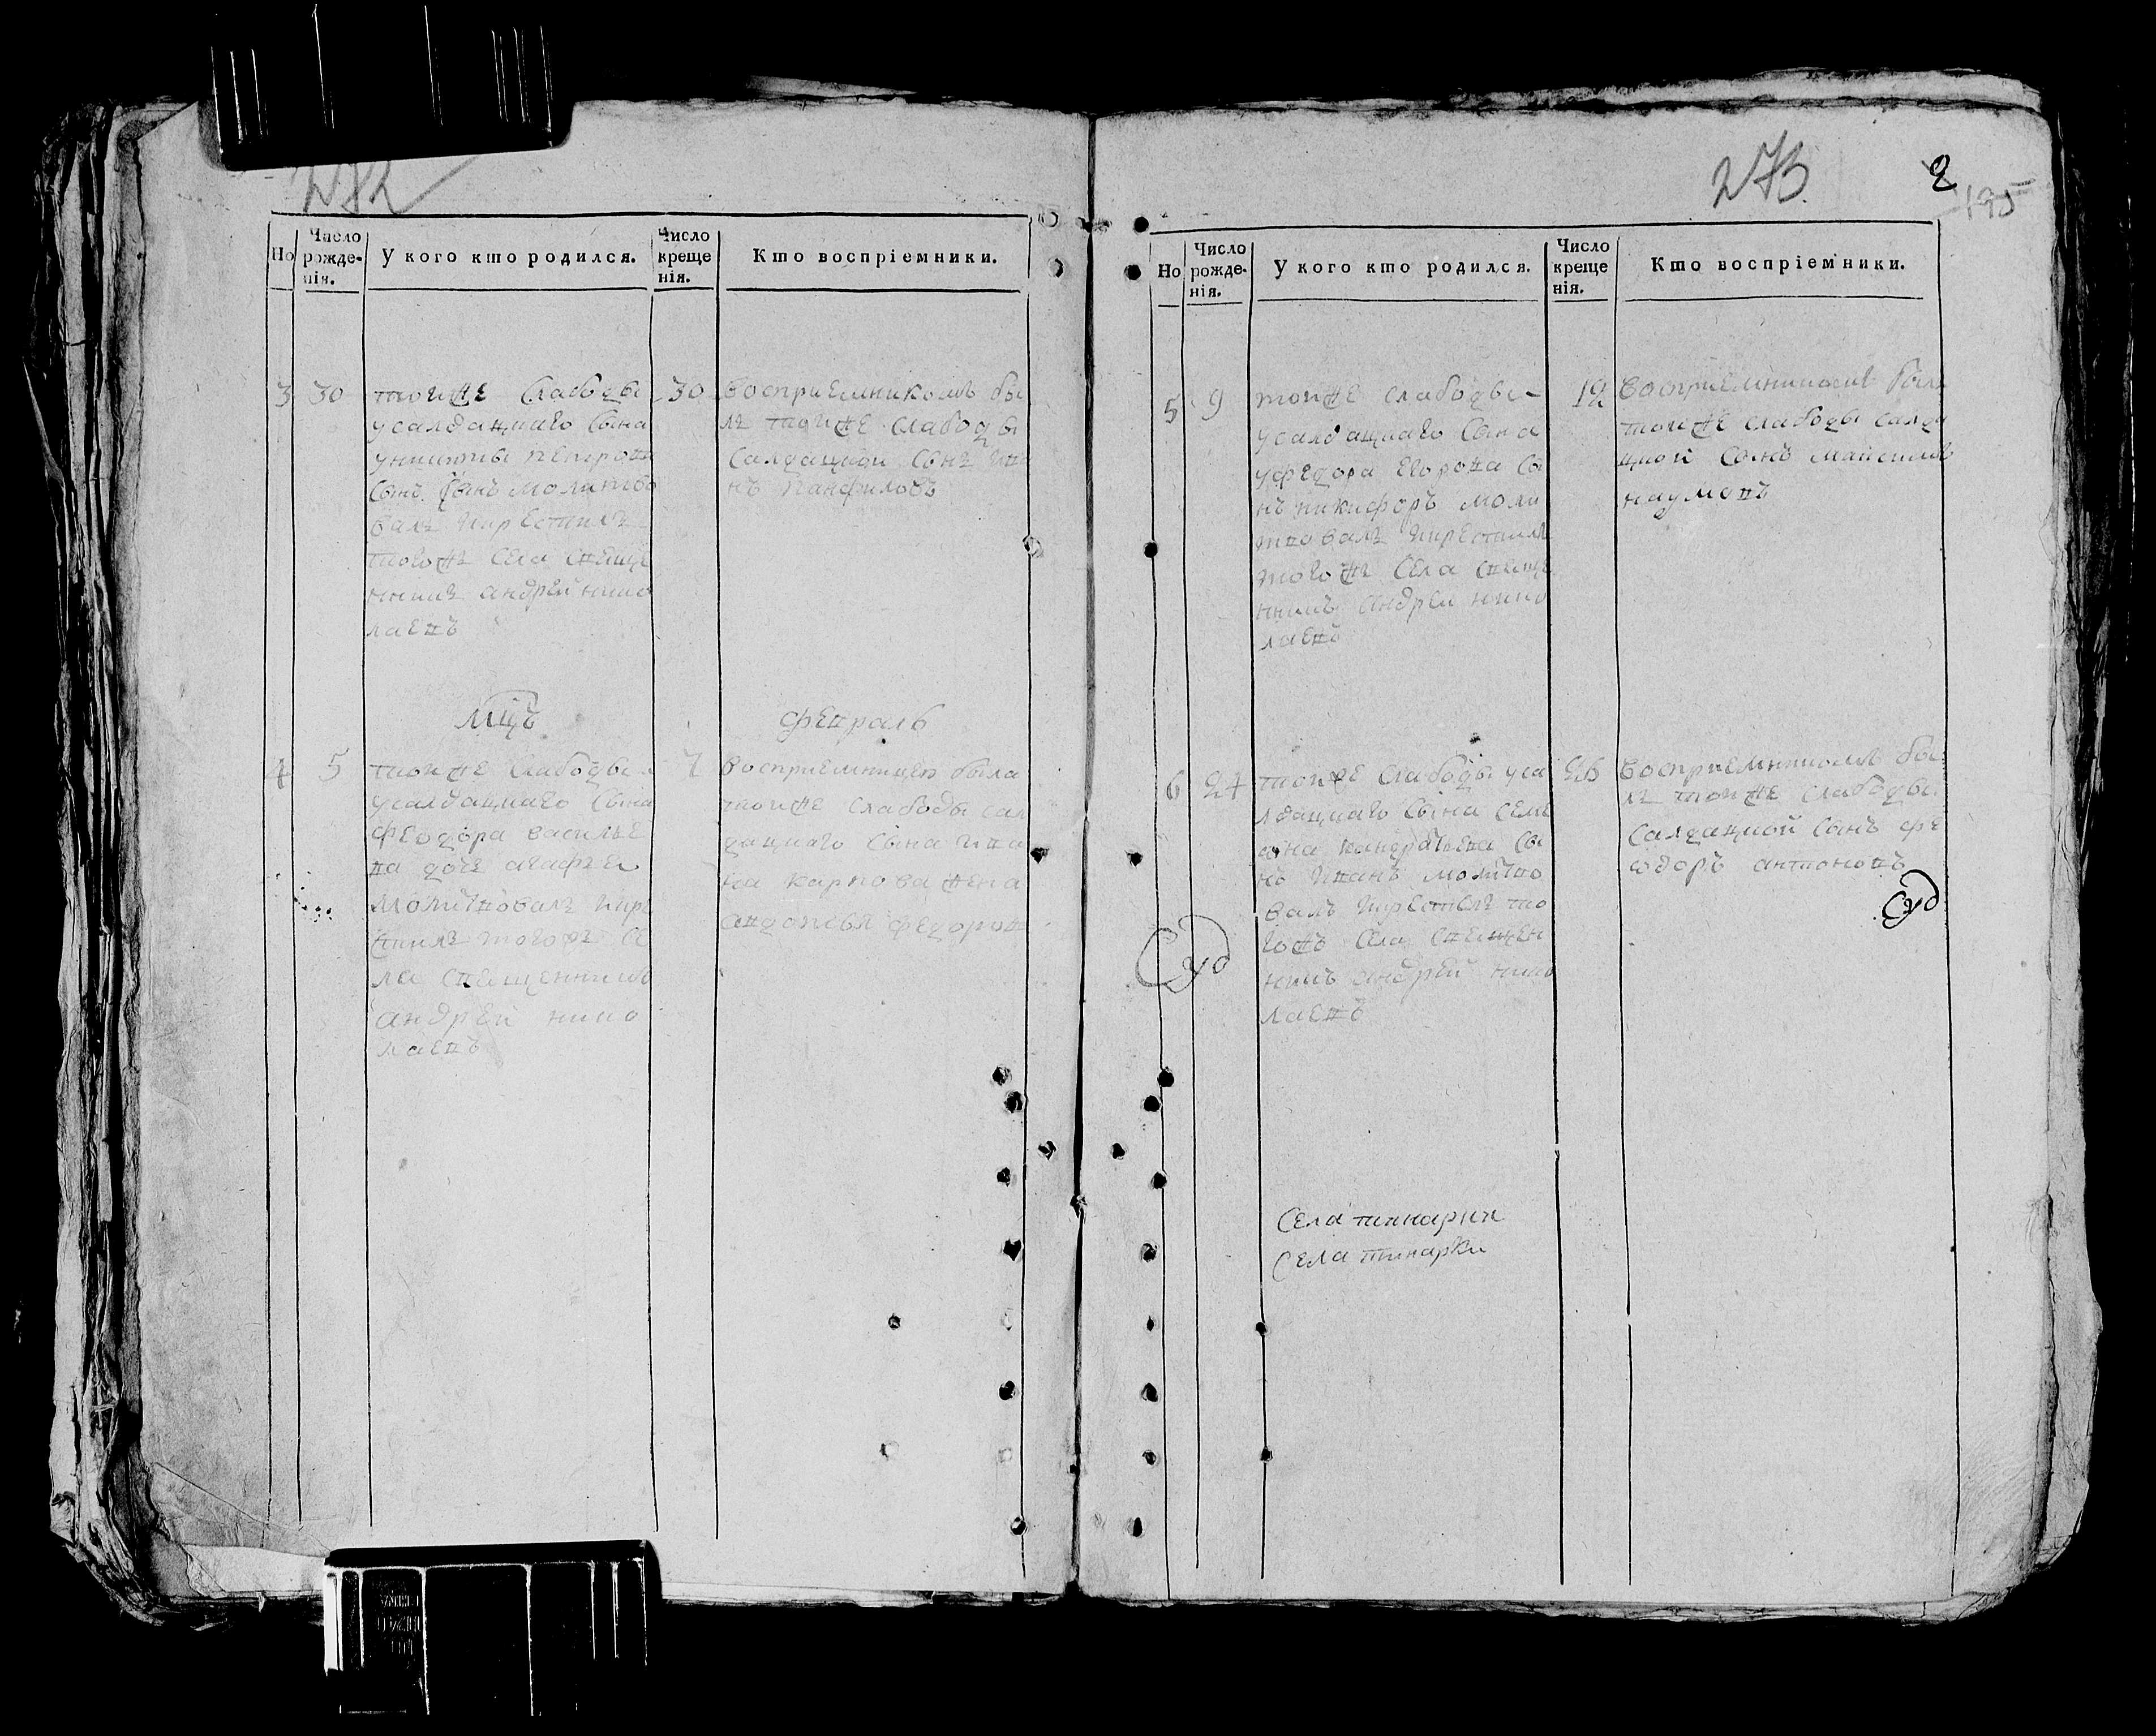 272
Но
Число рожде-нія.
У кого кто родился.
Число креще нія.
Кто воспріемники.
3 30
тоиже Слабоды
усалдацкаго Сына
уникиты петрова
Сынъ молитво
валъ икрестилъ
тогоже Села Свеще
нникъ андреи нико
лаевъ
30
восприемникомъ бы
лъ тоиже Слабоды
Салдацкои Сынъ ива
нъ Панфиловъ
Мцъ Февраль
4 5
тоиже Слабоды
усалдацкаго Сына
Феодора василье
ва дочь агафья
молитвовалъ икре
стилъ тогоже Се
ла Священникъ
андреи нико
лаевъ
7
восприемницею была
тоиже Слабоды сал
дацкаго Сына ива
на карпова жена
авдотья федоров
273 2
195
Но
Число рожде-нія.
У кого кто родился.
Число креще нія.
Кто воспріемники.
5 9
тоиже слабоды
усалдацкаго Сына
уфедора егорова Сы
нъ никифоръ моли
твовалъ икрестилъ
тогоже Села Свеще
нникъ андреи нико
лаевъ
12
восприемникомъ былъ
тоиже слабоды Салда
цкои Сынъ максимъ
наумовъ
6 24
тоиже Слабоды уса
лдацкаго Сына Семи
она кандратьева Сы
нъ иванъ молитво
валъ икрестилъ то
гожъ Села Свещен
никъ андреи нико
лаевъ
26
восприемникомъ бы
лъ тоиже слабоды
Салдацкои Сынъ фе
одоръ антоновъ
Села
Села